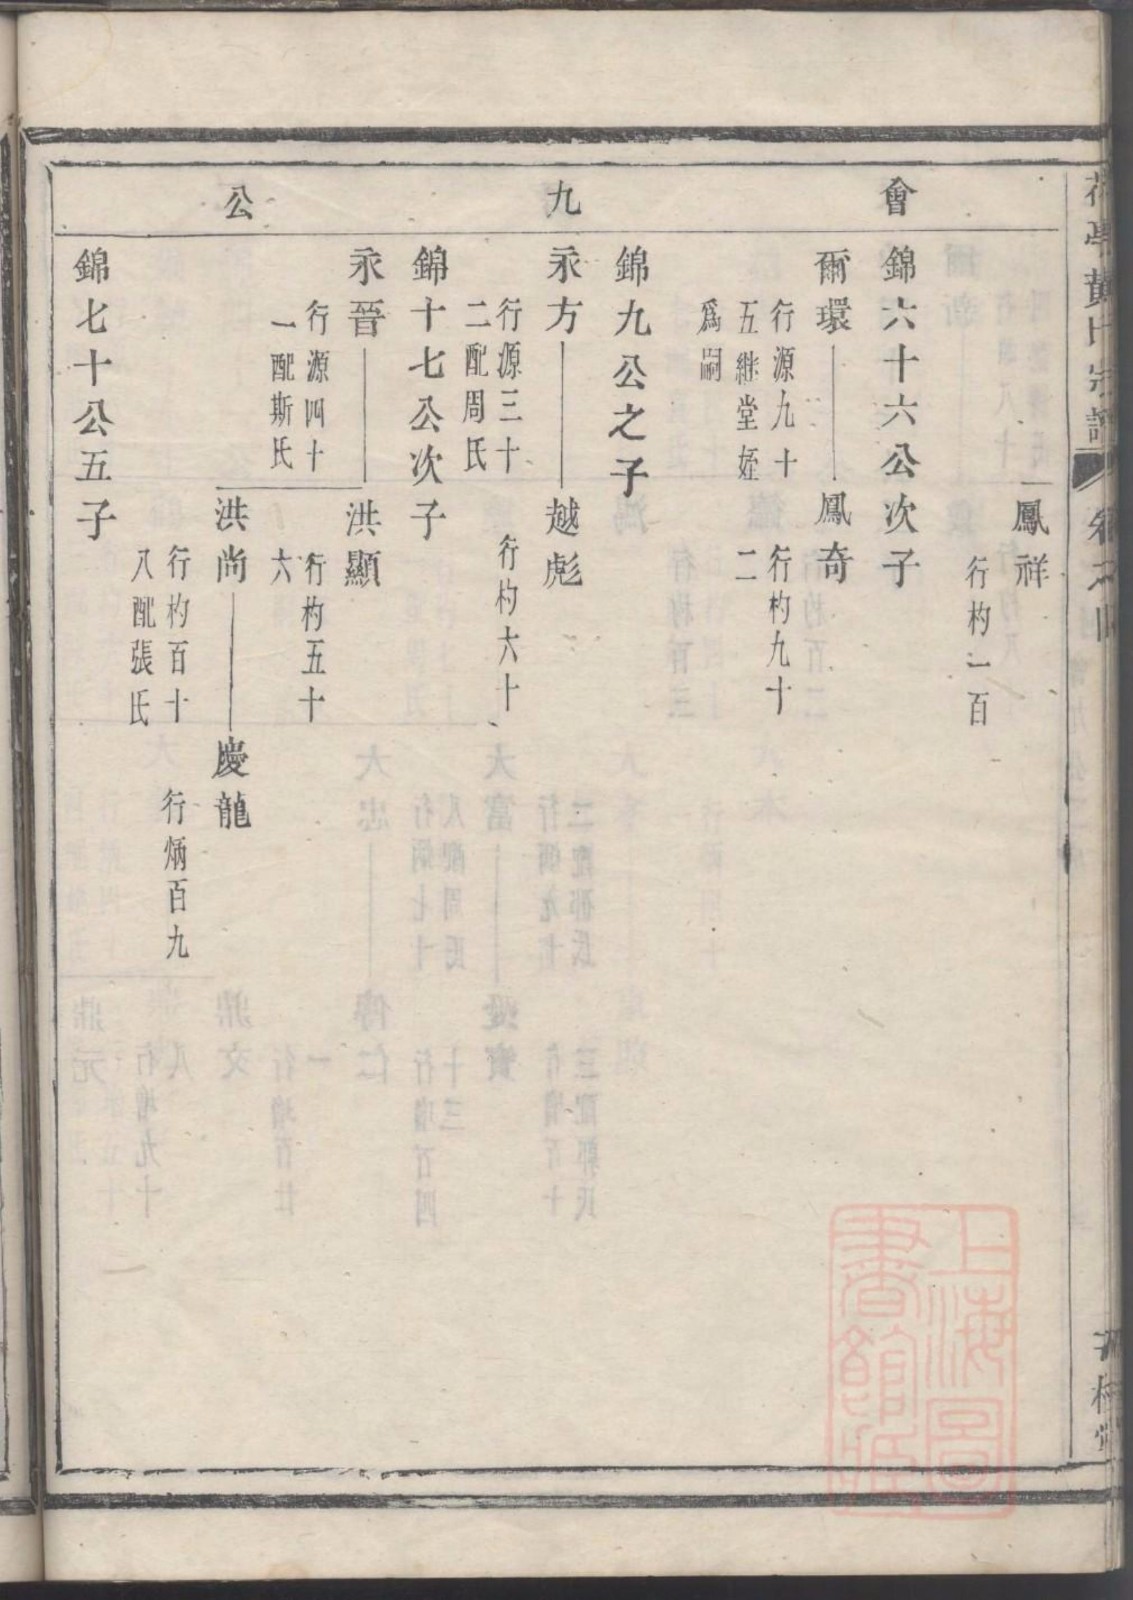 會
九
公
鳳祥
行杓一百
錦六十六公次子
爾環
行源九十
五継堂姪
爲嗣
鳳奇
行杓九十
二
錦九公之子
永方
行源三十
二配周氏
越彪
行杓六十
錦十七公次子
永晉
行源四十
一配斯氏
洪顯
行杓五十
六
洪尚
行杓百十
八配張氏
慶龍
行炳百九
錦七十公五子
上海圖
書館藏